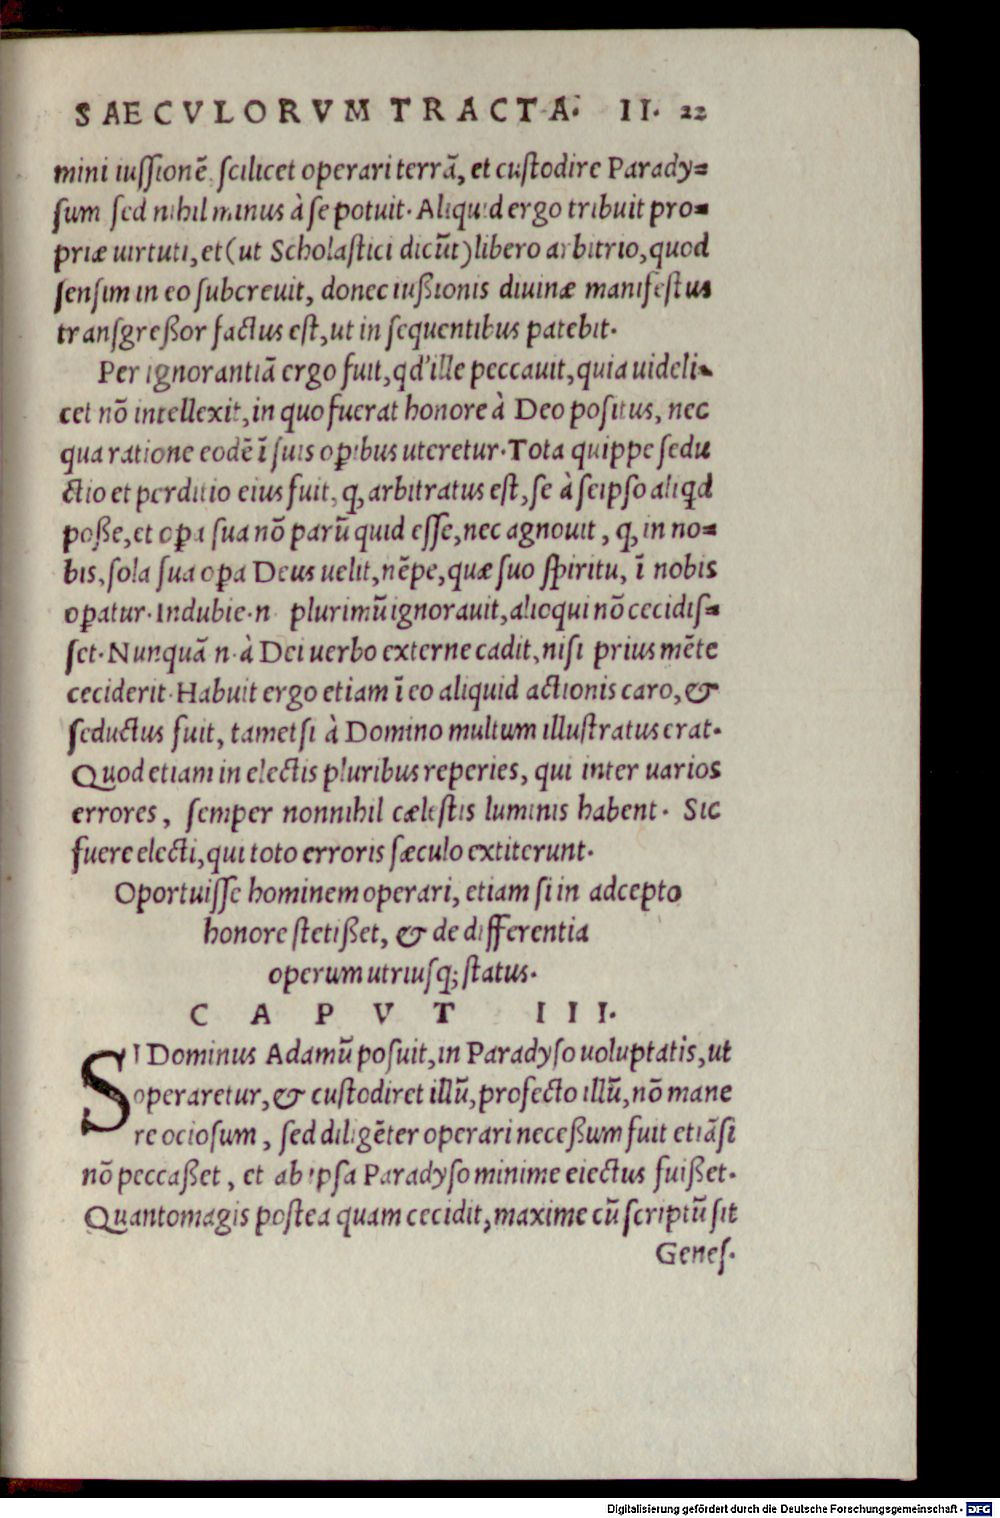 SAECVLORVM TRACTA. II. 22
mini iuſſionẽ ſcilicet operari terrã, et cuſtodire Parady⸗
ſum ſed nihil minus à ſe potuit. Aliquid ergo tribuit pro⸗
priæ uirtuti, et (ut Scholaſtici dicũt) libero arbitrio, quod
ſenſim in eo ſubcreuit, donec iußionis diuinæ manifeſtus
tranſgreßor factus eſt, ut in ſequentibus patebit.
Per ignorantiã ergo fuit, qd' ille peccauit, quia uideli⸗
cet nõ intellexit, in quo fuerat honore à Deo poſitus, nec
qua ratione eodẽ ĩ ſuis oꝑibus uteretur. Tota quippe ſedu
ctio et perditio eius fuit, ꝙ arbitratus eſt, ſe à ſeipſo aliqd
poße, et oꝑa ſua nõ parũ quid eſſe, nec agnouit, ꝙ in no⸗
bis, ſola ſua oꝑa Deus uelit, nẽpe, quæ ſuo ſpiritu, ĩ nobis
oꝑatur. Indubie .n. plurimũ ignorauit, alioqui nõ cecidiſ⸗
ſet. Nunquã n. à Dei uerbo externe cadit, niſi prius mẽte
ceciderit. Habuit ergo etiam ĩ eo aliquid actionis caro, &
ſeductus fuit, tametſi à Domino multum illuſtratus erat.
Quod etiam in electis pluribus reperies, qui inter uarios
errores, ſemper nonnihil cæleſtis luminis habent. Sic
fuere electi, qui toto erroris ſæculo extiterunt.
Oportuiſſe hominem operari, etiam ſi in adcepto
honore ſtetißet, & de differentia
operum utriuſq; ſtatus.
CAPVT III.
SI Dominus Adamũ poſuit, in Paradyſo uoluptatis, ut
operaretur, & cuſtodiret illũ, profecto illũ, nõ mane
re ocioſum, ſed diligẽter operari neceßum fuit etiãſi
nõ peccaßet, et ab ipſa Paradyſo minime eiectus fuißet.
Quantomagis poſtea quam cecidit, maxime cũ ſcriptũ ſit
Geneſ.
Digitalisierung gefördert durch die Deutsche Forschungsgemeinschaft - DFG